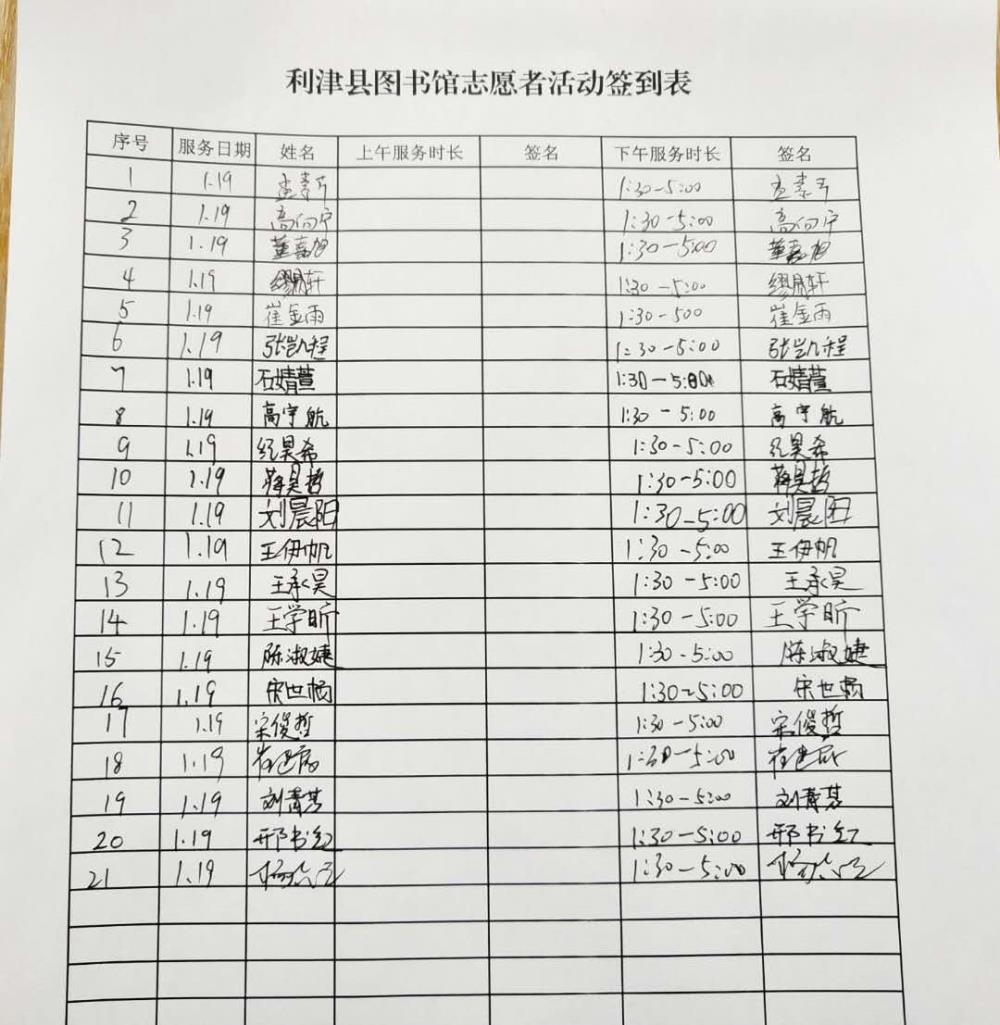 利津县图书馆志愿者活动签到表
序号 服务日期 姓名 上午服务时长 签名 下午服务时长 签名
1 1.19 1:30-5:00
2 1.19 高向宁 1:30-5:00 高向宁
3 1.19 董嘉旭 1:30-5:00 董嘉旭
4 1.19 1:30-5:00
5 1.19 崔金雨 1:30-500 崔金雨
6 1.19 张凯程 1:30-5:00 张凯程
7 1.19 石婧萱 1:30-5:00 石婧萱
8 1.19 高宇航 1:30-5:00 高宇航
9 1.19 纪昊希 1:30-5:00 纪昊希
10 1.19 蒋昊哲 1:30-5:00 蒋昊哲
11 1.19 刘晨阳 1:30-5:00 刘晨阳
12 1.19 王伊帆 1:30-5:00 王伊帆
13 1.19 王承昊 1:30-5:00 王承昊
14 1.19 王学昕 1:30-5:00 王学昕
15 1.19 陈淑婕 1:30-5:00 陈淑婕
16 1.19 1:30-5:00
17 1.19 宋俊哲 1:30-5:00 宋俊哲
18 1.19 1:30-5:00
19 1.19 1:30-5:00
20 1.19 邢书红 1:30-5:00 邢书红
21 1.19 1:30-5:00